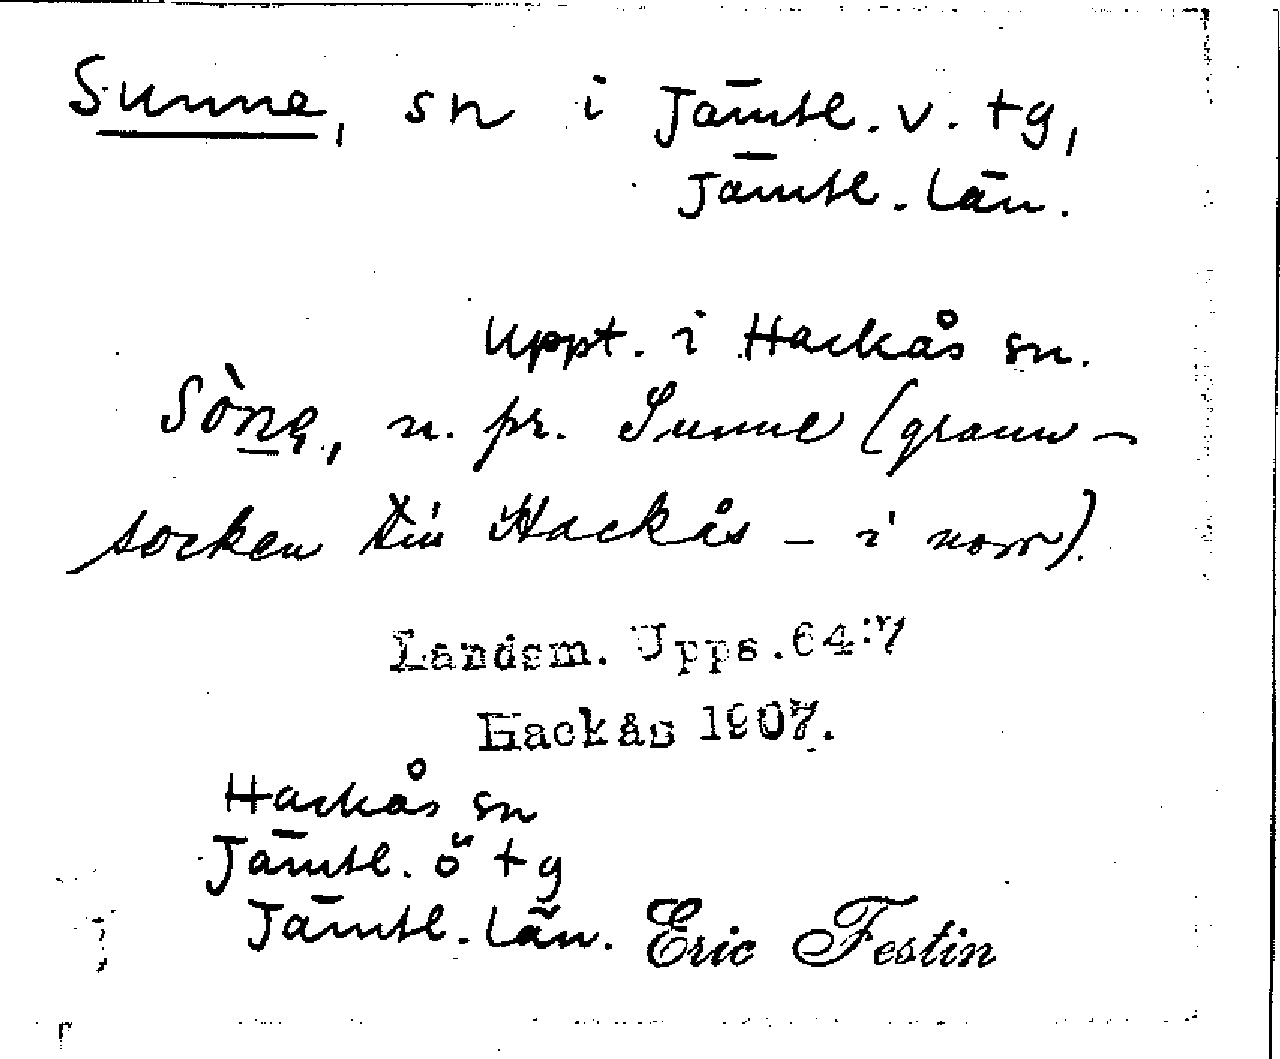 Sunne, sn i Jämtl. v. tg,
Jämtl. län.
Uppt. i Hackås sn.
Sòne, n. pr. Sunne (grann-
socken till Hackås - i norr).
Landsm. Upps. 64:7
Hackås 1907.
Hackås sn
Jämtl. ö tg
Jämtl. län. Eric Festin